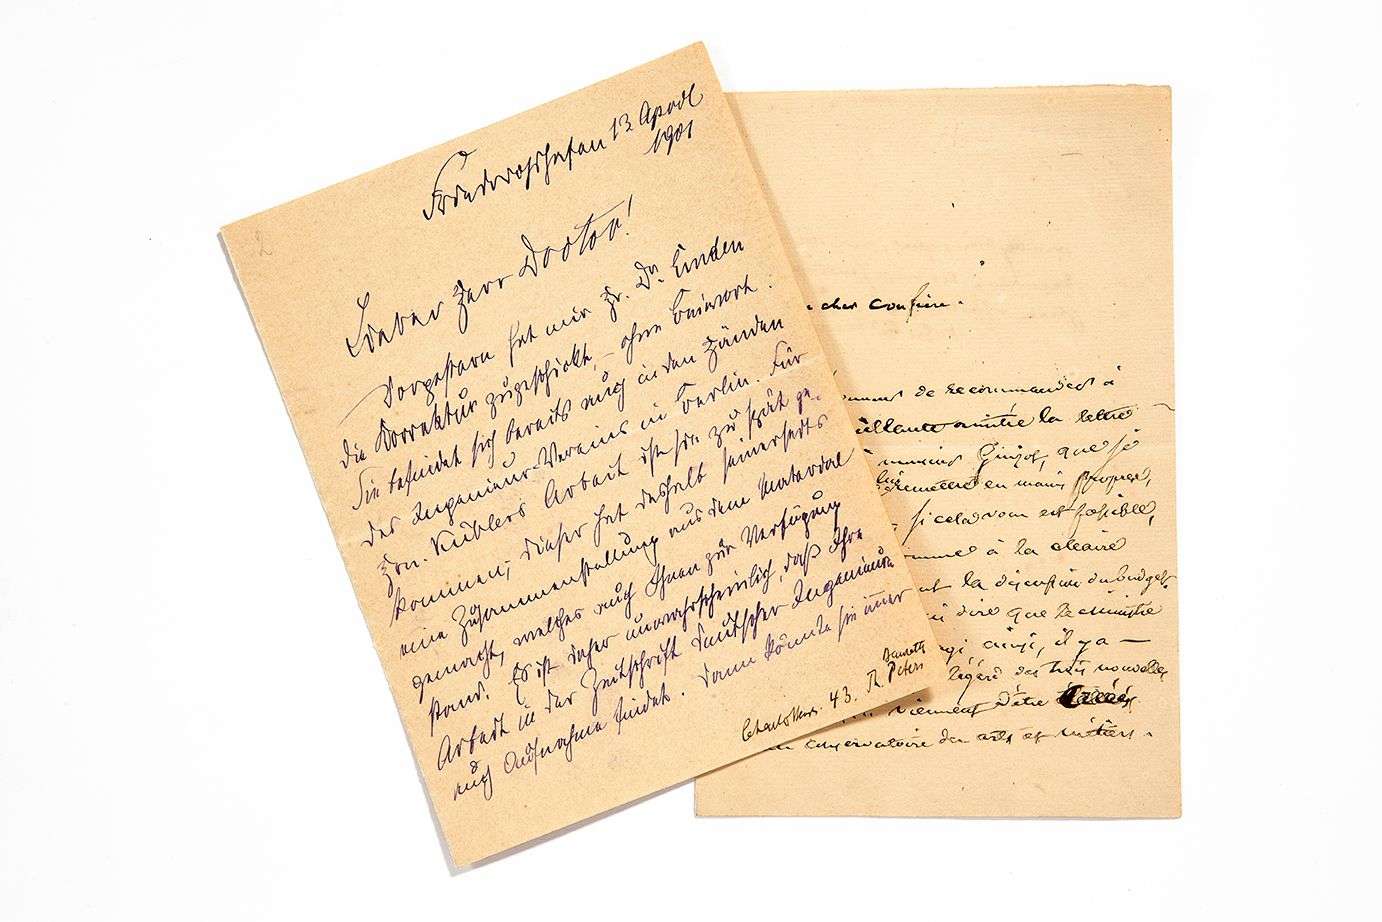 2
Friedrichshafen 13 April
1901
Lieber Herr Doctor!
Vorgestern hat mir Hr. Dr. Linden
die Korrektur zugeschickt, – ohne Beiwort.
Sie befindet sich bereits auch in den Händen
des Ingenieur-Vereins in Berlin. Für
Hrn. Küblers Arbeit ist sie zu spät ge-
kommen; dieser hat deshalb seinerseits
eine Zusammenstellung aus dem Material
gemacht, welches auch Ihnen zur Verfügung
stand. Es ist daher unwahrscheinlich, daß Ihre
Arbeit in der Zeitschrift deutscher Ingenieure
auch Aufnahme findet. Dann könnte sie immer
43. Th. Peters
cher confrère.
de recommander à
la lettre
que je
en mains propres,
si cela vous est possible,
à la claire
la discussion du budget
dire que le ministre
ainsi, il y a —
des trois nouvelles
viennent d'être créées
conservatoire des arts et métiers.